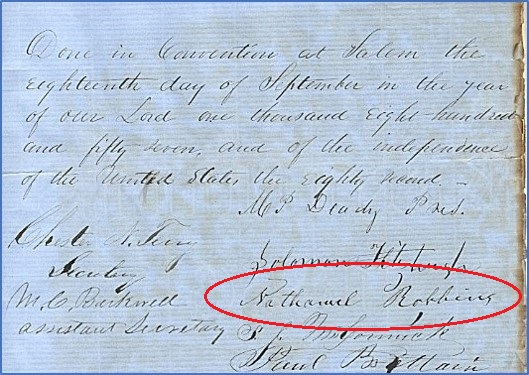 Done in Convention at Salem the
eighteenth day of September in the year
of our Lord one thousand eight hundred
and fifty seven, and of the independence
of the United States the eighty second –
M P Deady Pres.
Chester N. Terry
Secretary
M. C. Barkwell
assistant Secretary
Solomon Fitzhugh
Nathaniel Robbins
McCormick
Paul Brattain